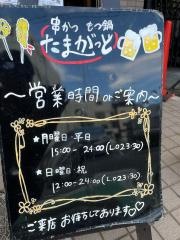 串かつ もつ鍋
たまがっと
～営業時間 orご案内～
★月曜日・平日
15:00 - 24:00(L023:30)
★日曜日・祝
12:00-24:00(L023:30)
ご来店 お待ちしております♡